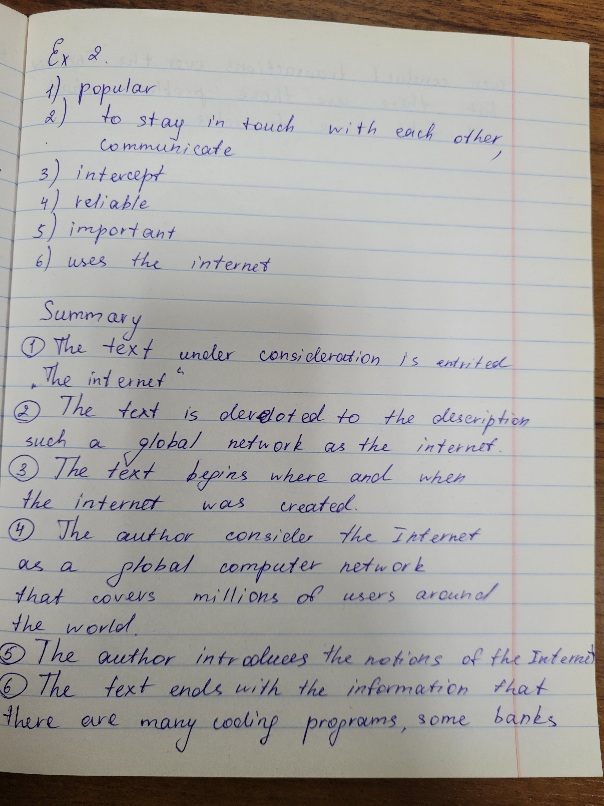 Ex 2.
1) popular
2) to stay in touch with each other,
communicate
3) intercept
4) reliable
5) important
6) uses the internet
Summary
① The text under consideration is entrited
„The internet“
② The text is devoloted to the description
such a global network as the internet.
③ The text begins where and when
the internet was created.
④ The author consider the Internet
as a global computer network
that covers millions of users around
the world.
⑤ The author introduces the notions of the Internet
⑥ The text ends with the information that
there are many coding programs, some banks